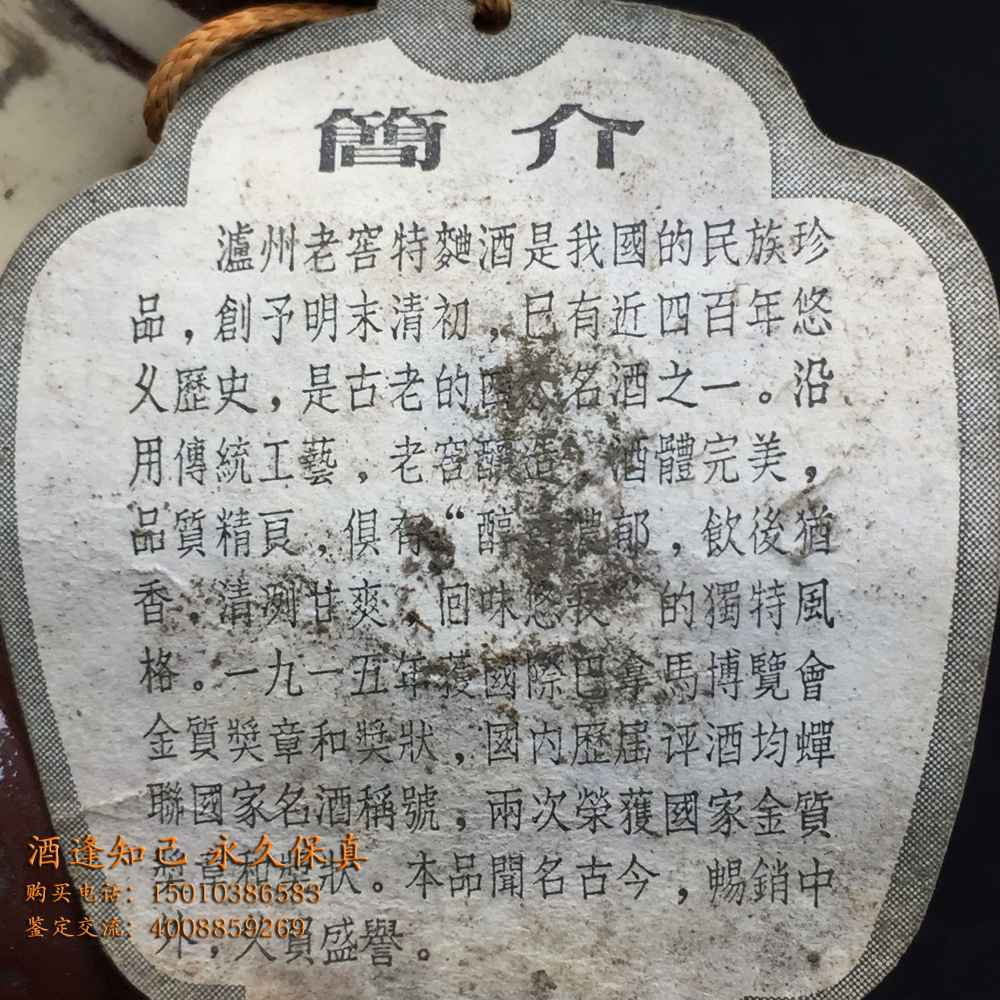 簡介
瀘州老窖特麯酒是我國的民族珍
品，創予明末清初，已有近四百年悠
乆歷史，是古老的四大名酒之一。沿
用傳統工藝，老窖釀造，酒體完美，
品質精良，俱有“醇香濃郁，飲後猶
香，清洌甘爽，回味悠長”的獨特風
格。一九一五年獲國際巴拿馬博覽會
金質獎章和獎狀，國內歷届评酒均蟬
聯國家名酒稱號，兩次榮獲國家金質
獎章和獎狀。本品聞名古今，暢銷中
外，久負盛譽。
酒逢知己 永久保真
购买电话：15010386583
鉴定交流：4008859269